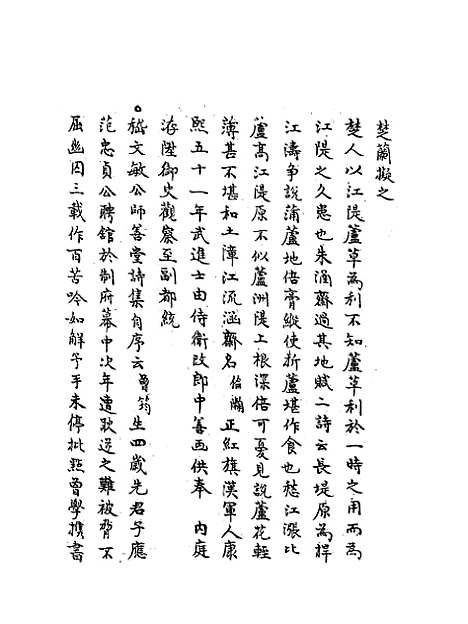 楚蘭擬之
楚人以江隄蘆草為利不知蘆草利於一時之用而為
江隄之久患也朱涵齋過其地賦二詩云長堤原為捍
江濤爭說蒲蘆地倍膏縱使折蘆堪作食也愁江漲比
蘆高江隄原不似蘆洲隄上根深倍可憂見說蘆花輕
薄甚不堪和土障江流涵齋名倫瀚正紅旗漢軍人康
熙五十一年武進士由侍衛改郎中善画供奉 內庭
洊陞御史觀察至副都統
嵇文敏公師善堂詩集自序云曾筠生四歲先君子應
范忠貞公聘舘於制府幕中次年遭耿逆之難被脅不
屈幽囚三載作百苦吟如解予手未停批㸃曾學攜書